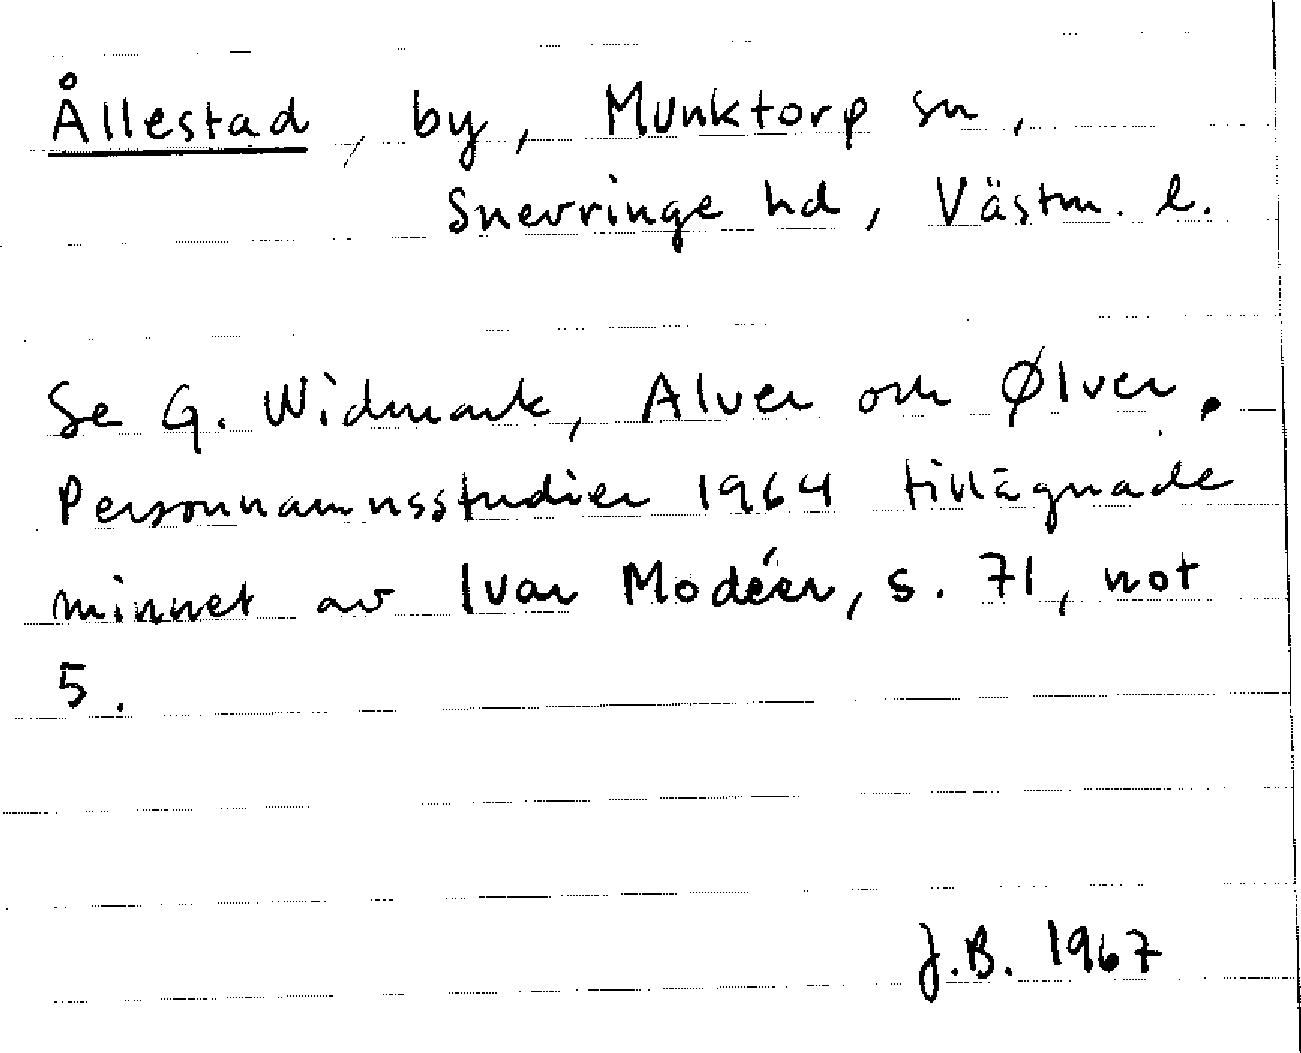 Ållestad, by, Munktorp sn,
Snevringe hd, Västm. l.
Se G. Widmark, Alver och Ølver.
Personnamnsstudier 1964 tillägnade
minnet av Ivar Modéer, s. 71, not
5.
J.B. 1967